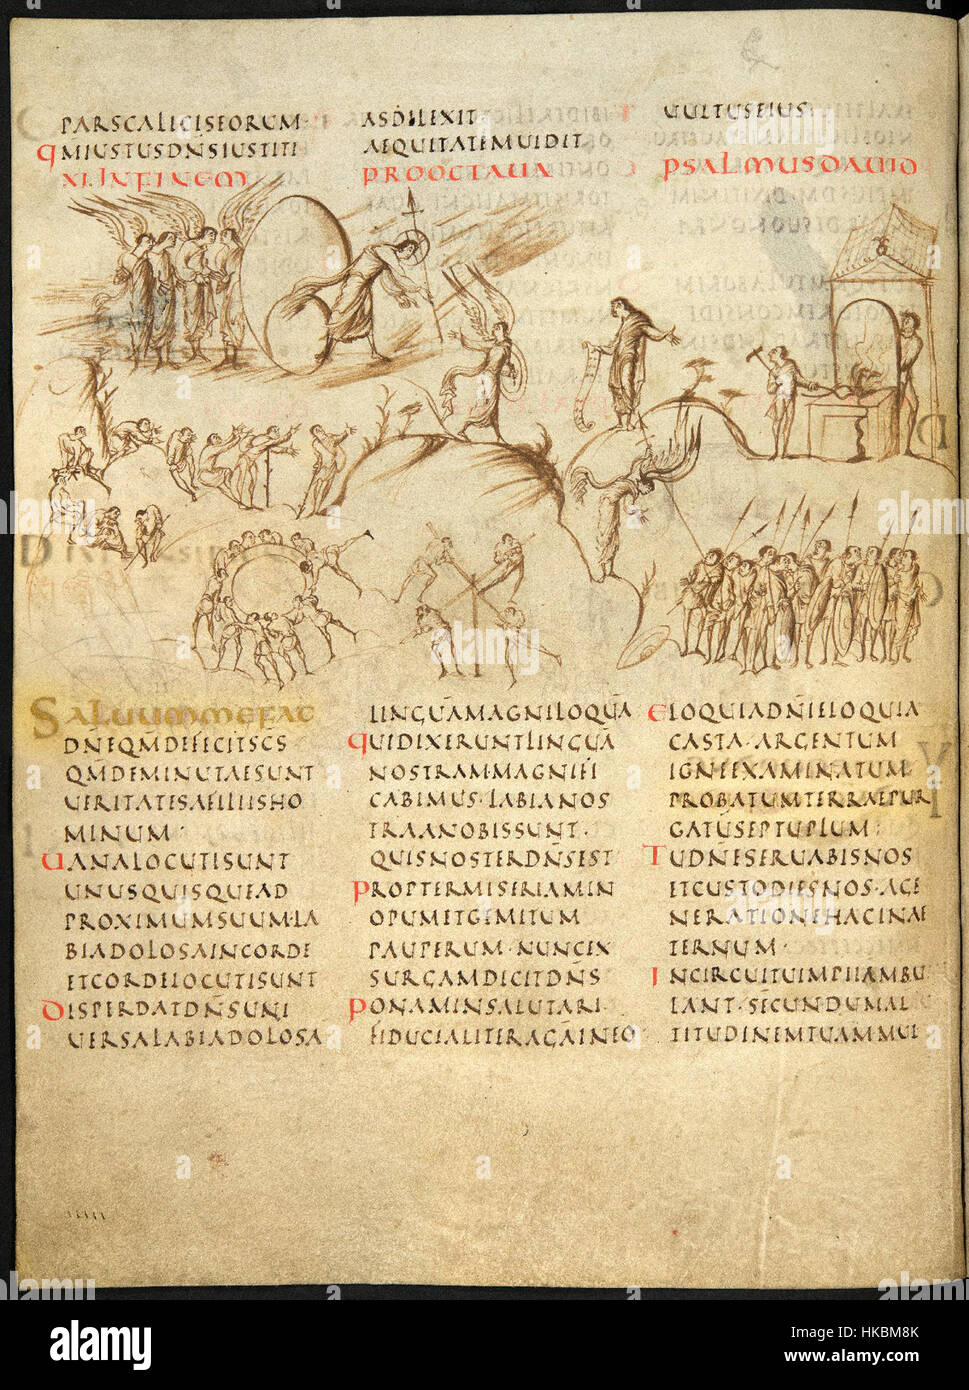 PARSCALICISEORUM
QMIUSTUSDN̄SIUSTITI
ASDILEXIT
AEQUITATEMUIDIT
UULTUSEIUS
XI. INFINEM
PROOCTAUA
PSALMUSDAUID
SALUUMMEFAC
DN̄EQM̄DEFICITSC̄S
QM̄DEMINUTAESUNT
UERITATESAFILIISHO
MINUM·
UANALOCUTISUNT
UNUSQUISQUEAD
PROXIMUMSUUM·LA
BIADOLOSAINCORDE
ETCORDELOCUTISUNT
DISPERDATDN̄SUNI
UERSALABIADOLOSA
LINGUĀMAGNILOQUĀ
QUIDIXERUNTLINGUĀ
NOSTRAMMAGNIFI
CABIMUS·LABIANOS
TRAANOBISSUNT·
QUISNOSTERDN̄SEST
PROPTERMISERIAMIN
OPUMETGEMITUM
PAUPERUM·NUNCEX
SURGAMDICITDN̄S
PONAMINSALUTARI·
FIDUCIALITERAGĀINEO
ELOQUIADN̄IELOQUIA
CASTA·ARGENTUM
IGNEEXAMINATUM
PROBATUMTERRAEPUR
GATŪSEPTUPLUM:
TUDN̄ESERUABISNOS
ETCUSTODIESNOS·AGE
NERATIONEHACINAE
TERNUM·
INCIRCUITUIMPIIAMBU
LANT·SECUNDUMAL
TITUDINEMTUAMMUL
alamy
Image ID: HKBM8K
www.alamy.com